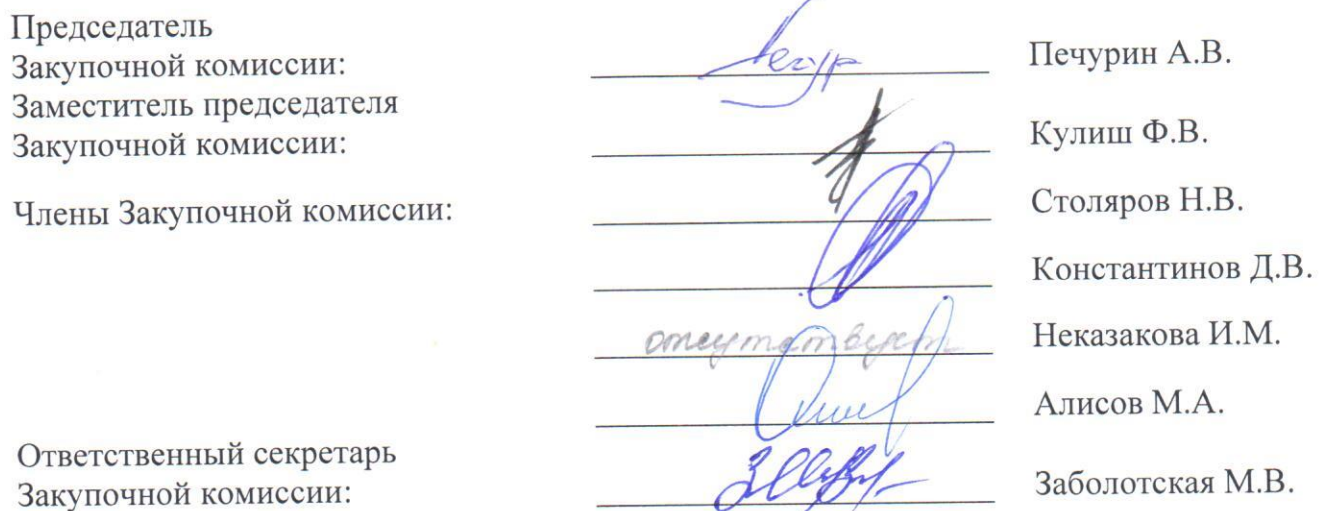 Председатель
Закупочной комиссии: Печурин А.В.
Заместитель председателя
Закупочной комиссии: Кулиш Ф.В.
Члены Закупочной комиссии: Столяров Н.В.
Константинов Д.В.
отсутствует Неказакова И.М.
Алисов М.А.
Ответственный секретарь
Закупочной комиссии: Заболотская М.В.